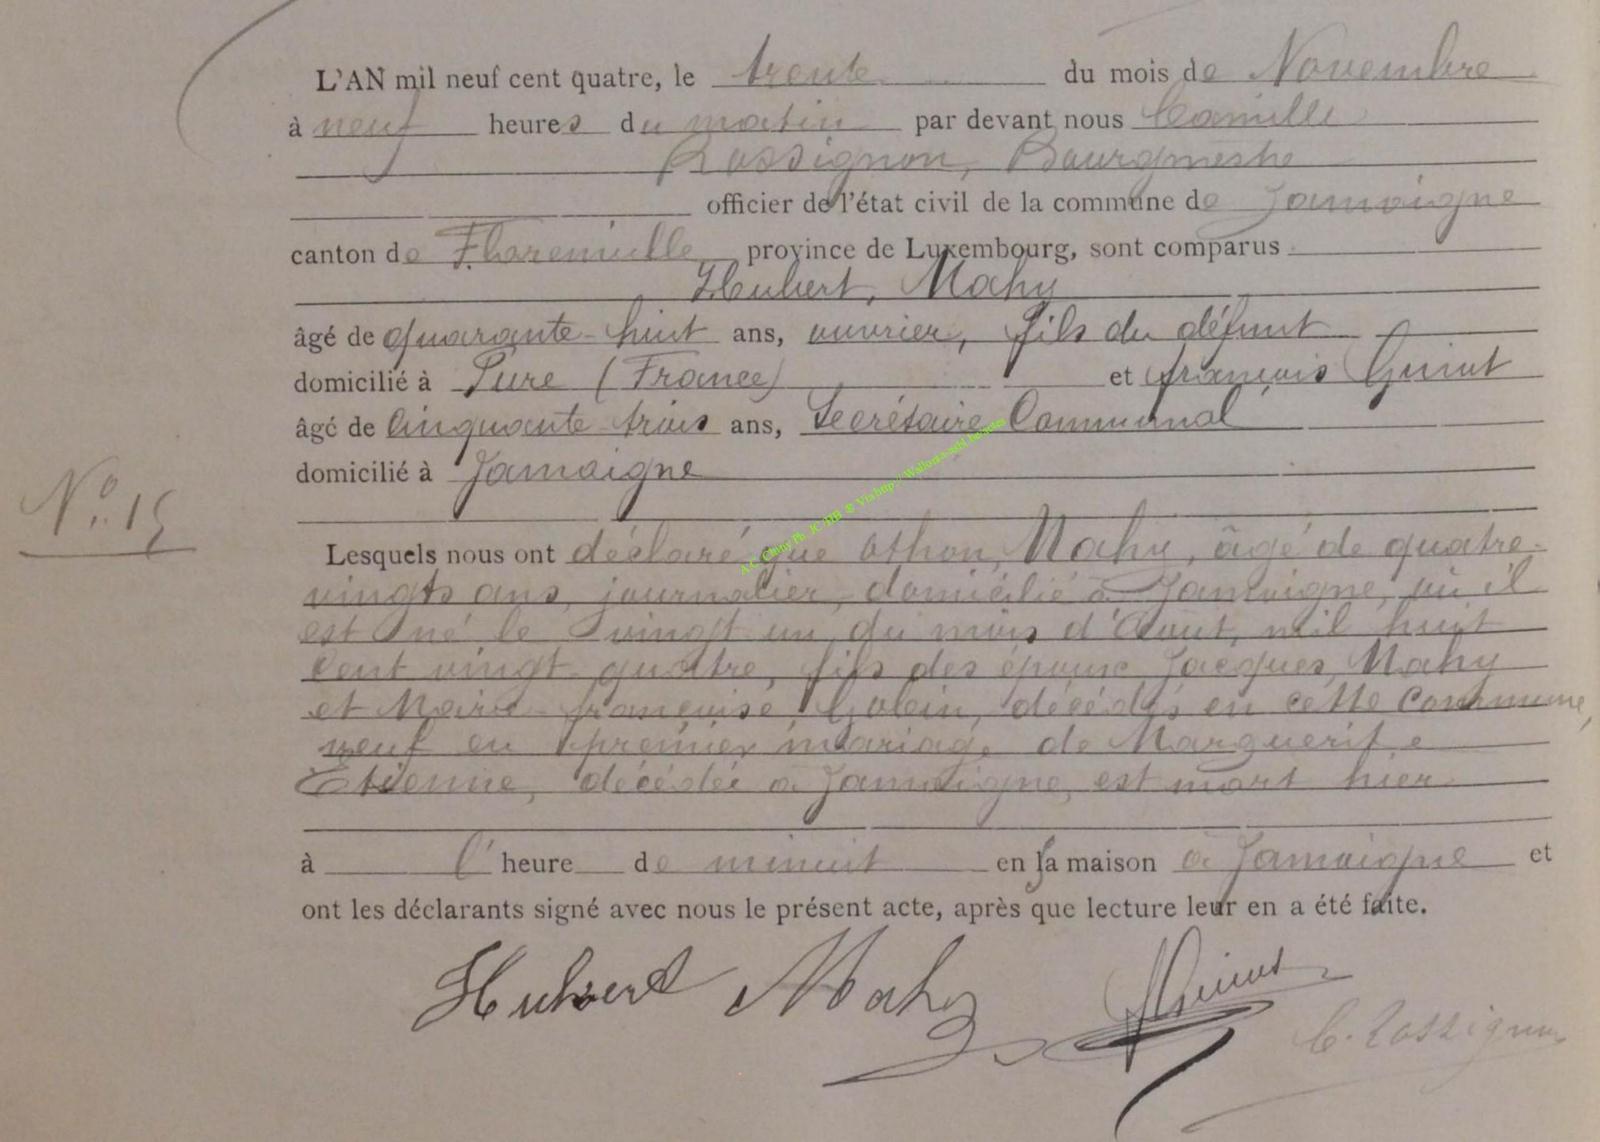 L'AN mil neuf cent quatre, le trente du mois de Novembre
à neuf heures du matin par devant nous Camille
Rossignon, Bourgmestre
officier de l'état civil de la commune de Jamoigne
canton de Florenville province de Luxembourg, sont comparus
Hubert, Mahy
âgé de quarante-huit ans, ouvrier, fils du défunt
domicilié à Pure (France) et françois Guiut
âgé de cinquante trois ans, Secrétaire Communal
domicilié à Jamoigne
N° 15
Lesquels nous ont déclaré que Othon, Mahy, âgé de quatre-
vingts ans, journalier, domicilié à Jamoigne, où il
est né le vingt un du mois d'Aout, mil huit
cent vingt-quatre, fils des époux Jacques, Mahy
et Marie-françoise, décédés en cette Commune,
veuf en premier mariage de Marguerite
Etienne, décédée à Jamoigne, est mort hier
à l'heure de minuit en sa maison à Jamoigne et
ont les déclarants signé avec nous le présent acte, après que lecture leur en a été faite.
Hubert Mahy
C. Rossignon
A.C. Chiny Ph. JC /DB & Via http://